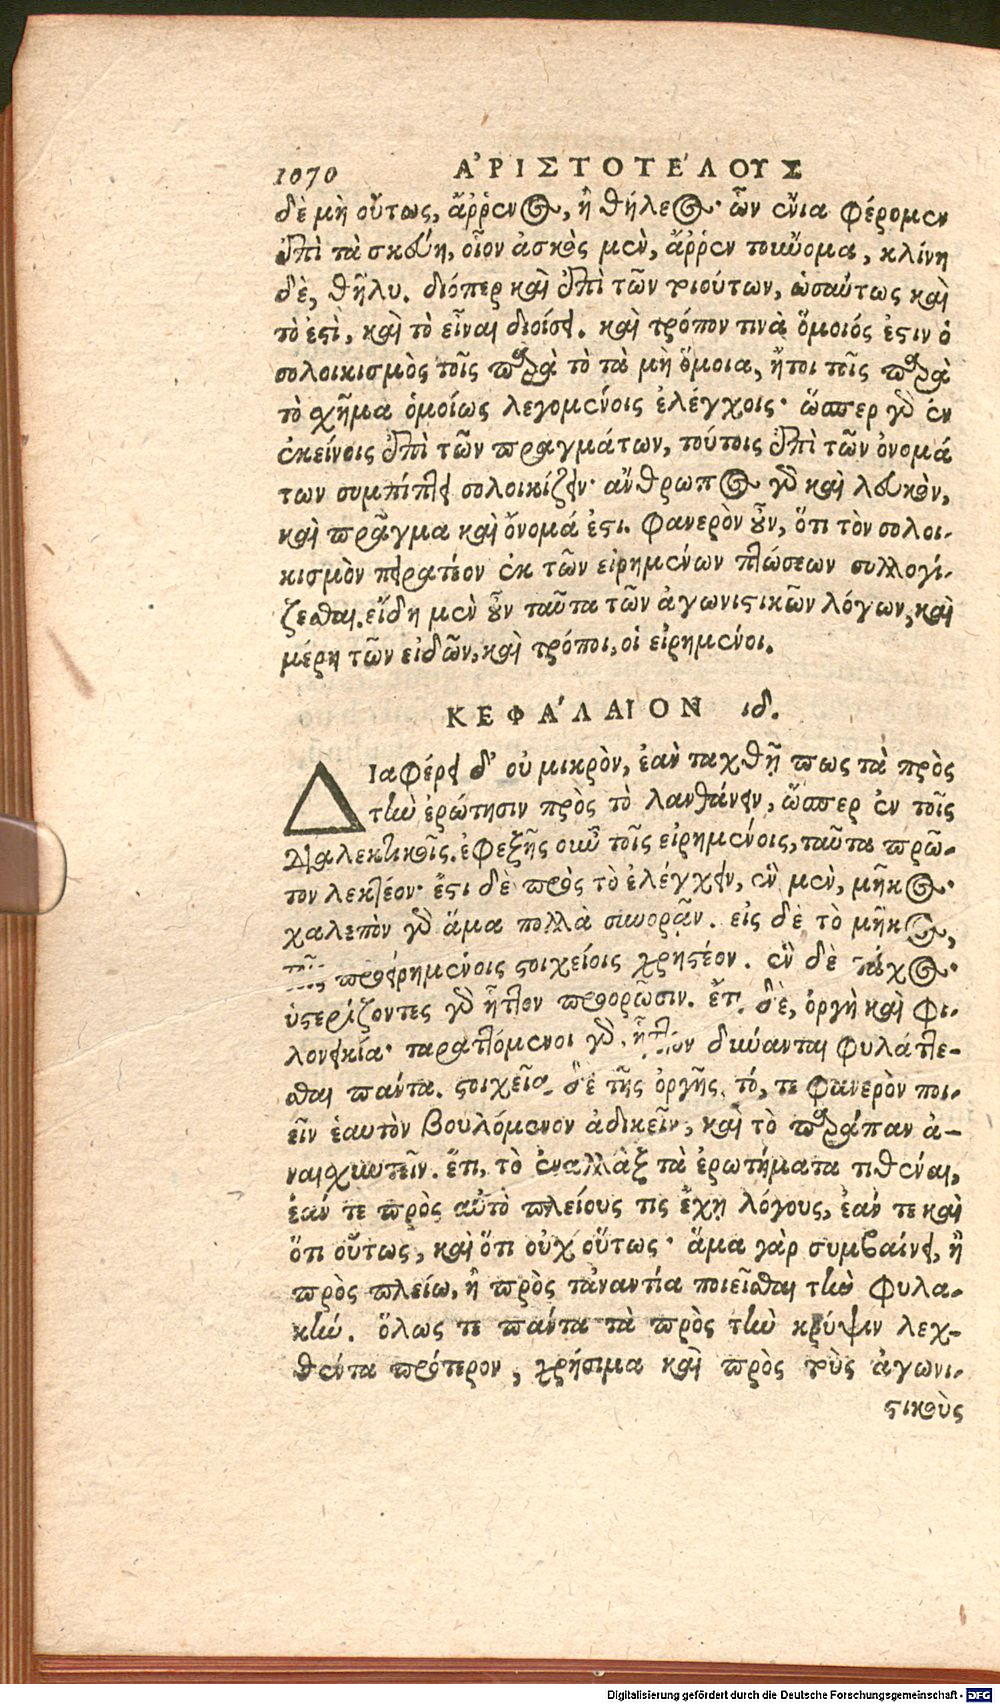 1070 ἈΡΙΣΤΟΤΈΛΟΥΣ
δὲ μὴ οὕτως, ἄῤῥενος, ἢ θήλεος· ὧν ἔνια φέρομεν
ἐπὶ τὰ σκεύη, οἷον ἀσκὸς μὲν, ἄῤῥεν τοὔνομα, κλίνη
δὲ, θῆλυ. διόπερ καὶ ἐπὶ τῶν τοιούτων, ὡσαύτως καὶ
τὸ ἐστὶ, καὶ τὸ εἶναι διοίσει. καὶ τρόπον τινὰ ὅμοιός ἐστιν ὁ
σολοικισμὸς τοῖς παρὰ τὸ τὰ μὴ ὅμοια, ἤτοι τοῖς παρὰ
τὸ χῆμα ὁμοίως λεγομένοις ἐλέγχοις· ὥσπερ γὰρ ἐν
ἐκείνοις ἐπὶ τῶν πραγμάτων, τούτοις ἐπὶ τῶν ὀνομά
των συμπίπτει σολοικίζειν· ἄνθρωπος γὰρ καὶ λευκὸν,
καὶ πρᾶγμα καὶ ὄνομά ἐστι. φανερὸν οὖν, ὅτι τὸν σολοι-
κισμὸν πειρατέον ἐκ τῶν εἰρημένων πτώσεων συλλογί-
ζεσθαι. εἴδη μὲν οὖν ταῦτα τῶν ἀγωνιστικῶν λόγων, καὶ
μέρη τῶν εἰδῶν, καὶ τρόποι, οἱ εἰρημένοι.
ΚΕΦΆΛΑΙΟΝ ιδ.
Διαφέρει δ' οὐ μικρὸν, ἐὰν ταχθῇ πως τὰ πρὸς
τὴν ἐρώτησιν πρὸς τὸ λανθάνειν, ὥσπερ ἐν τοῖς
διαλεκτικοῖς. ἐφεξῆς οὖν τοῖς εἰρημένοις, ταῦτα πρῶ-
τον λεκτέον· ἔστι δὲ πρὸς τὸ ἐλέγχειν, ἓν μὲν, μῆκος·
χαλεπὸν γὰρ ἅμα πολλὰ συνορᾷν. εἰς δὲ τὸ μῆκος,
τοῖς προειρημένοις στοιχείοις χρηστέον. ἓν δὲ τάχος·
ὑστερίζοντες γὰρ ἧττον προορῶσιν. ἔτι δὲ, ὀργὴ καὶ φι-
λονεικία· ταραττόμενοι γὰρ ἧττον δύνανται φυλάττε-
σθαι πάντα. στοιχεῖα δὲ τῆς ὀργῆς, τό, τε φανερὸν ποι-
εῖν ἑαυτὸν βουλόμενον ἀδικεῖν, καὶ τὸ παράπαν ἀ-
ναισχυντεῖν. ἔτι, τὸ ἐναλλὰξ τὰ ἐρωτήματα τιθέναι,
ἐάν τε πρὸς αὐτὸ πλείους τις ἔχῃ λόγους, ἐάν τε καὶ
ὅτι οὕτως, καὶ ὅτι οὐχ οὕτως· ἅμα γὰρ συμβαίνει, ἢ
πρὸς πλείω, ἢ πρὸς τἀναντία ποιεῖσθαι τὴν φυλα-
κήν. ὅλως τε πάντα τὰ πρὸς τὴν κρύψιν λεχ-
θέντα πρότερον, χρήσιμα καὶ πρὸς τοὺς ἀγωνι-
στικοὺς
Digitalisierung gefördert durch die Deutsche Forschungsgemeinschaft - DFG